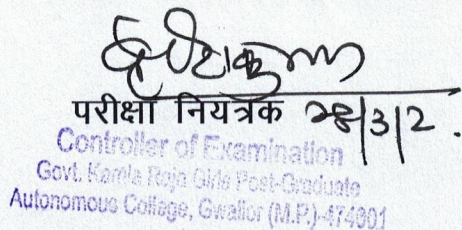 परीक्षा नियत्रक 28/3/2.
Controller of Examination
Govt. Kamla Raja Girls Post-Graduate
Autonomous College, Gwalior (M.P.)-474001